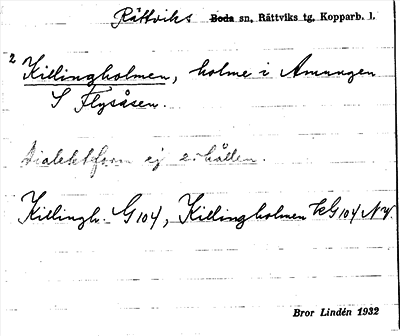 Rättviks Boda sn, Rättviks tg, Kopparb. l.
2 Killingholmen, holme i Amungen
S Flysåsen.
Dialektform ej erhållen.
Killingh. G 104, Killingholmen kG 104 NV.
Bror Lindén 1932